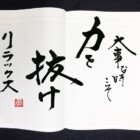 大事な時こそ
力を
抜け
リラックス